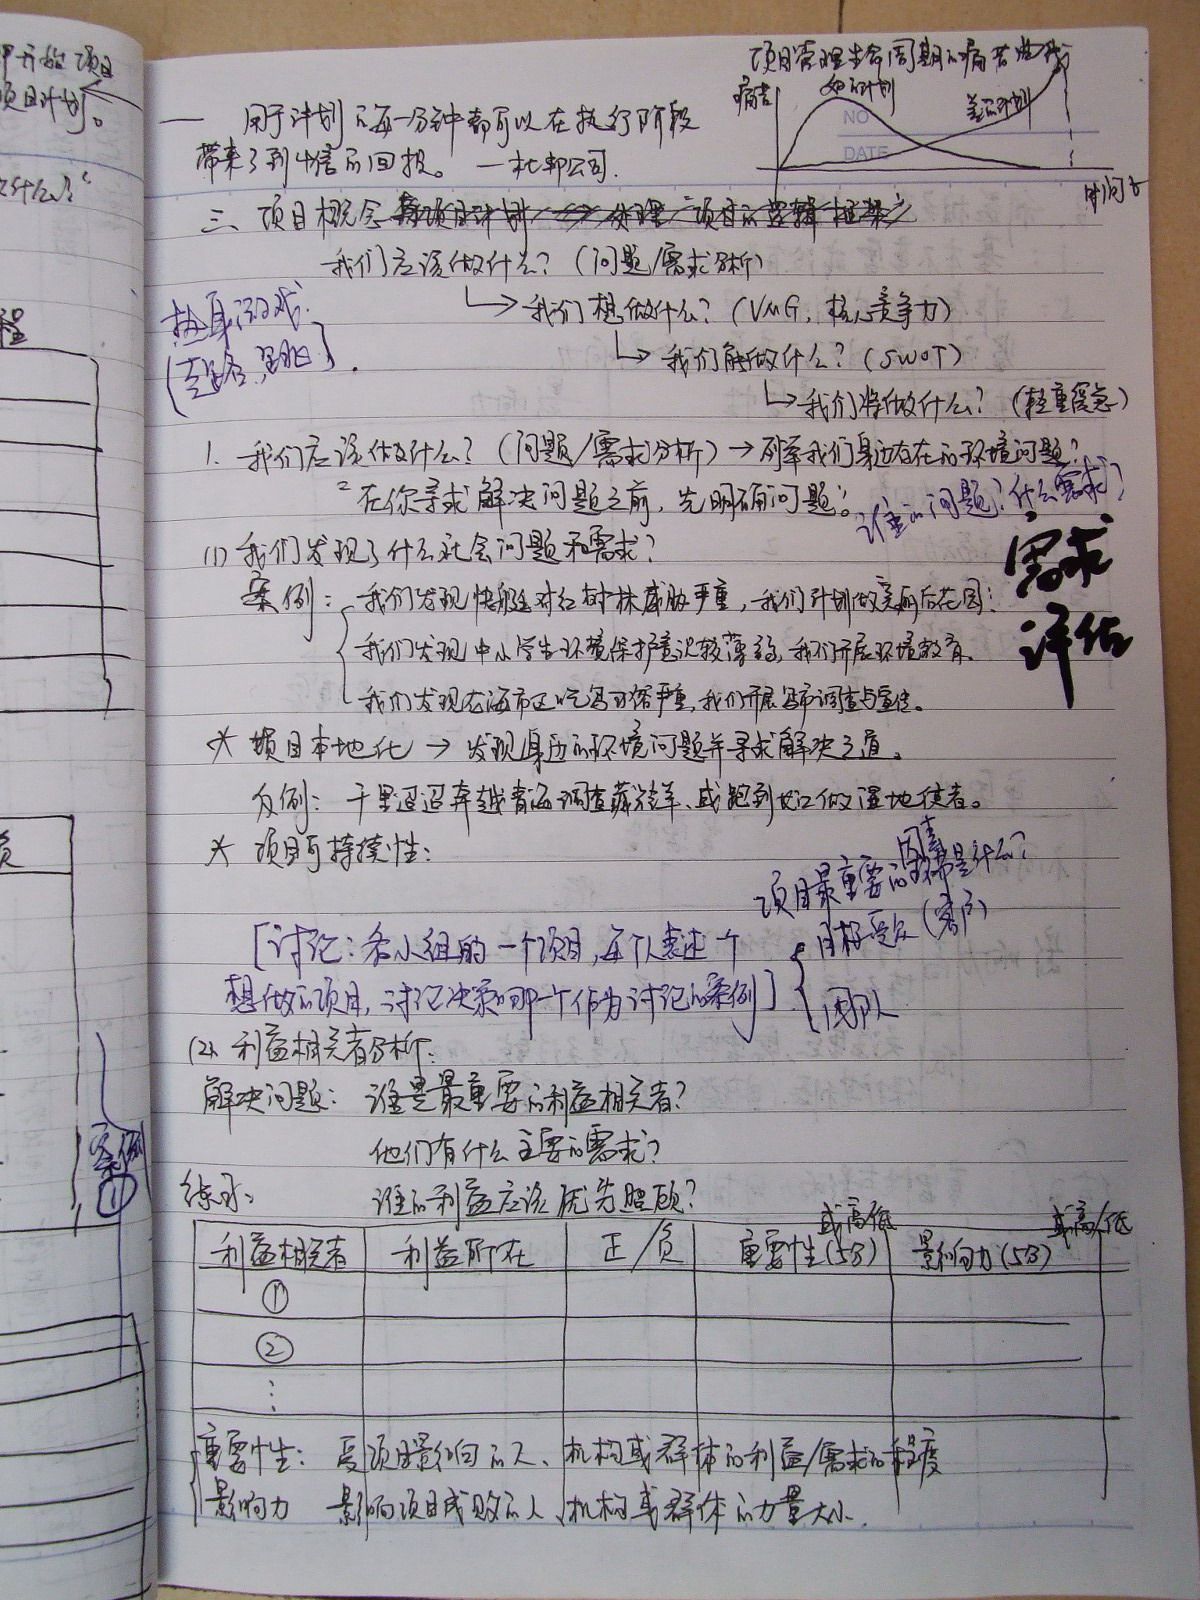 即开始项目
项目计划。
项目管理生命周期的痛苦曲线
痛苦
好的计划
差的计划
时间t
NO
DATE
— 用于计划的每一分钟都可以在执行阶段
带来3到4倍的回报。 —杜邦公司.
三、项目概念
我们应该做什么？（问题/需求分析）
→我们想做什么？（VMG，核心竞争力）
→我们能做什么？（SWOT）
→我们将做什么？（轻重缓急）
热身游戏：
1. 我们应该做什么？（问题/需求分析）→列举我们身边存在的环境问题？
"在你寻求解决问题之前，先明确问题"。
谁的问题？什么需求？
(1) 我们发现了什么社会问题和需求？
需求
评估
案例：我们发现快艇对红树林威胁严重，我们计划做美丽后花园；
我们发现中小学生环境保护意识较薄弱，我们开展环境教育。
我们发现在海市还吃鸟习俗严重，我们开展鸟市调查与宣传。
* 项目本地化 → 发现身边的环境问题并寻求解决之道。
反例：千里迢迢奔赴青海调查藏羚羊、或跑到做湿地使者。
* 项目可持续性：
项目最重要的因素是什么？
目标受众（客户）
团队
[讨论：各小组的一个项目，每个人表述一个
想做的项目，讨论决策哪一个作为讨论的案例]
(2) 利益相关者分析：
解决问题：谁是最重要的利益相关者？
他们有什么主要的需求？
谁的利益应该优先照顾？
练习：
案例
①
利益相关者 利益所在 正/负 重要性(5分) 或高低 影响力(5分) 或高/低
①
②
⋮
重要性：受项目影响的人、机构或群体的利益/需求的程度
影响力 影响项目成败的人、机构或群体的力量大小.